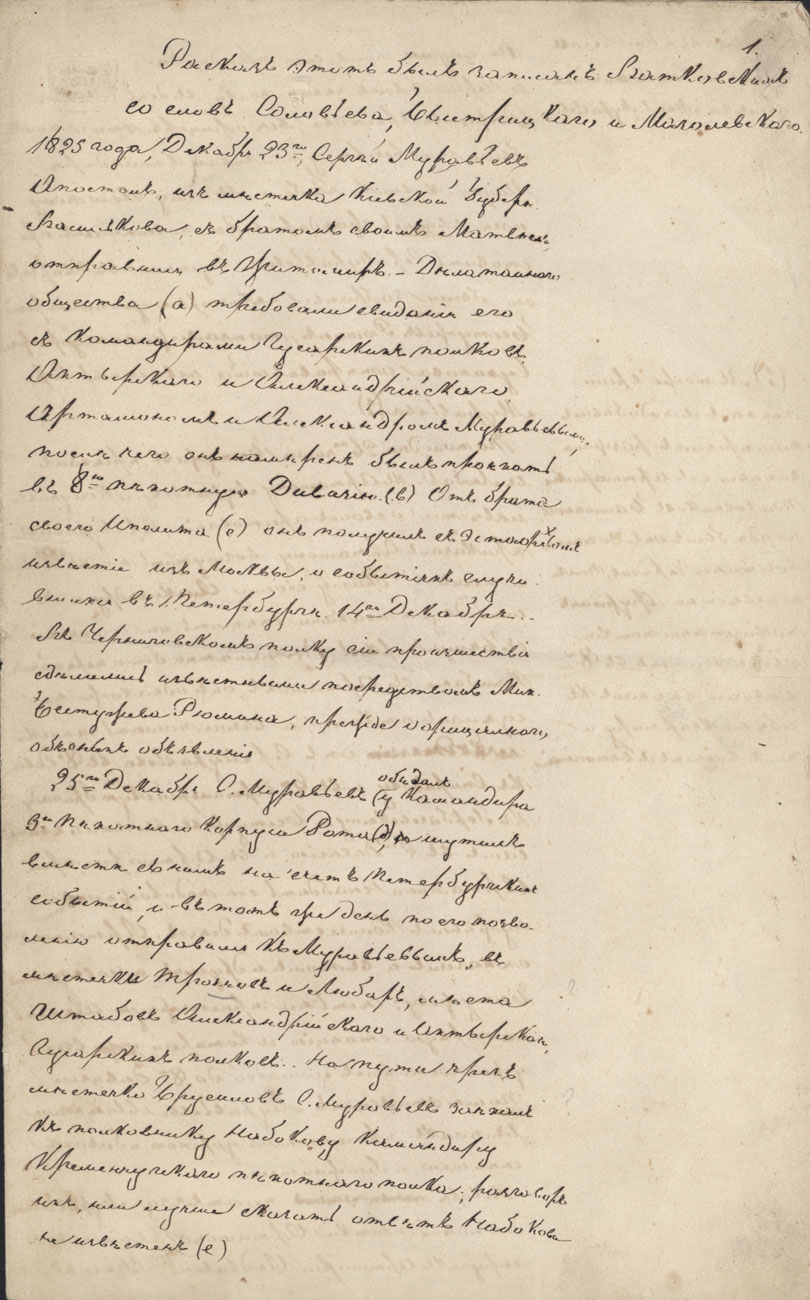 1.
Расказъ этотъ былъ записанъ Вадковскимъ
со словъ Соловьева, Быстрицкаго и Мозолевскаго.
1825 года, Декабря 23го, Сергѣй Муравьевъ
Апостолъ, изъ мѣстечка Кіевской Губерн.
Василькова, съ братомъ своимъ Матвѣемъ,
отправился въ Житомиръ. – Дѣла тайнаго
общества (а) требовали свиданія его
съ командирами Гусарскихъ полковъ,
Ахтырскаго и Александрійскаго,
Артамономъ и Александромъ Муравьевыми,
послѣ чего онъ намѣренъ былъ проѣхать
въ 8ю пѣхотную Дивизію. (b) Отъ брата
своего Иполита (с) онъ получилъ съ Эстафетомъ
извѣстіе изъ Москвы, о событіяхъ случи-
вшихся въ Петербургѣ 14го Декабря.
Въ Черниговскомъ полку сіи проишествія
сдѣлались извѣстными посредствомъ Мих.
Бестужева Рюмина, прежде оффиціальнаго
объ нихъ объявленія
25го Декабря С. Муравьевъ обѣдалъ (у Командира
3го пѣхотнаго Корпуса Рота (d), шутилъ
вмѣстѣ съ нимъ на счетъ Петербургскихъ
событій, и въ тотъ же день по его позво-
ленію отправился къ Муравьевымъ, въ
мѣстечки Трояновъ и Любаръ, мѣста
Штабовъ Александрійскаго и Ахтырскаго,
Гусарскихъ полковъ. На пути чрезъ
мѣстечко Брусиловъ С. Муравьевъ заѣхалъ
къ полковнику Набокову, командиру
Кременчугскаго пѣхотнаго полка; разговоръ
ихъ, или лучше сказать отвѣтъ Набокова
не извѣстенъ (е)